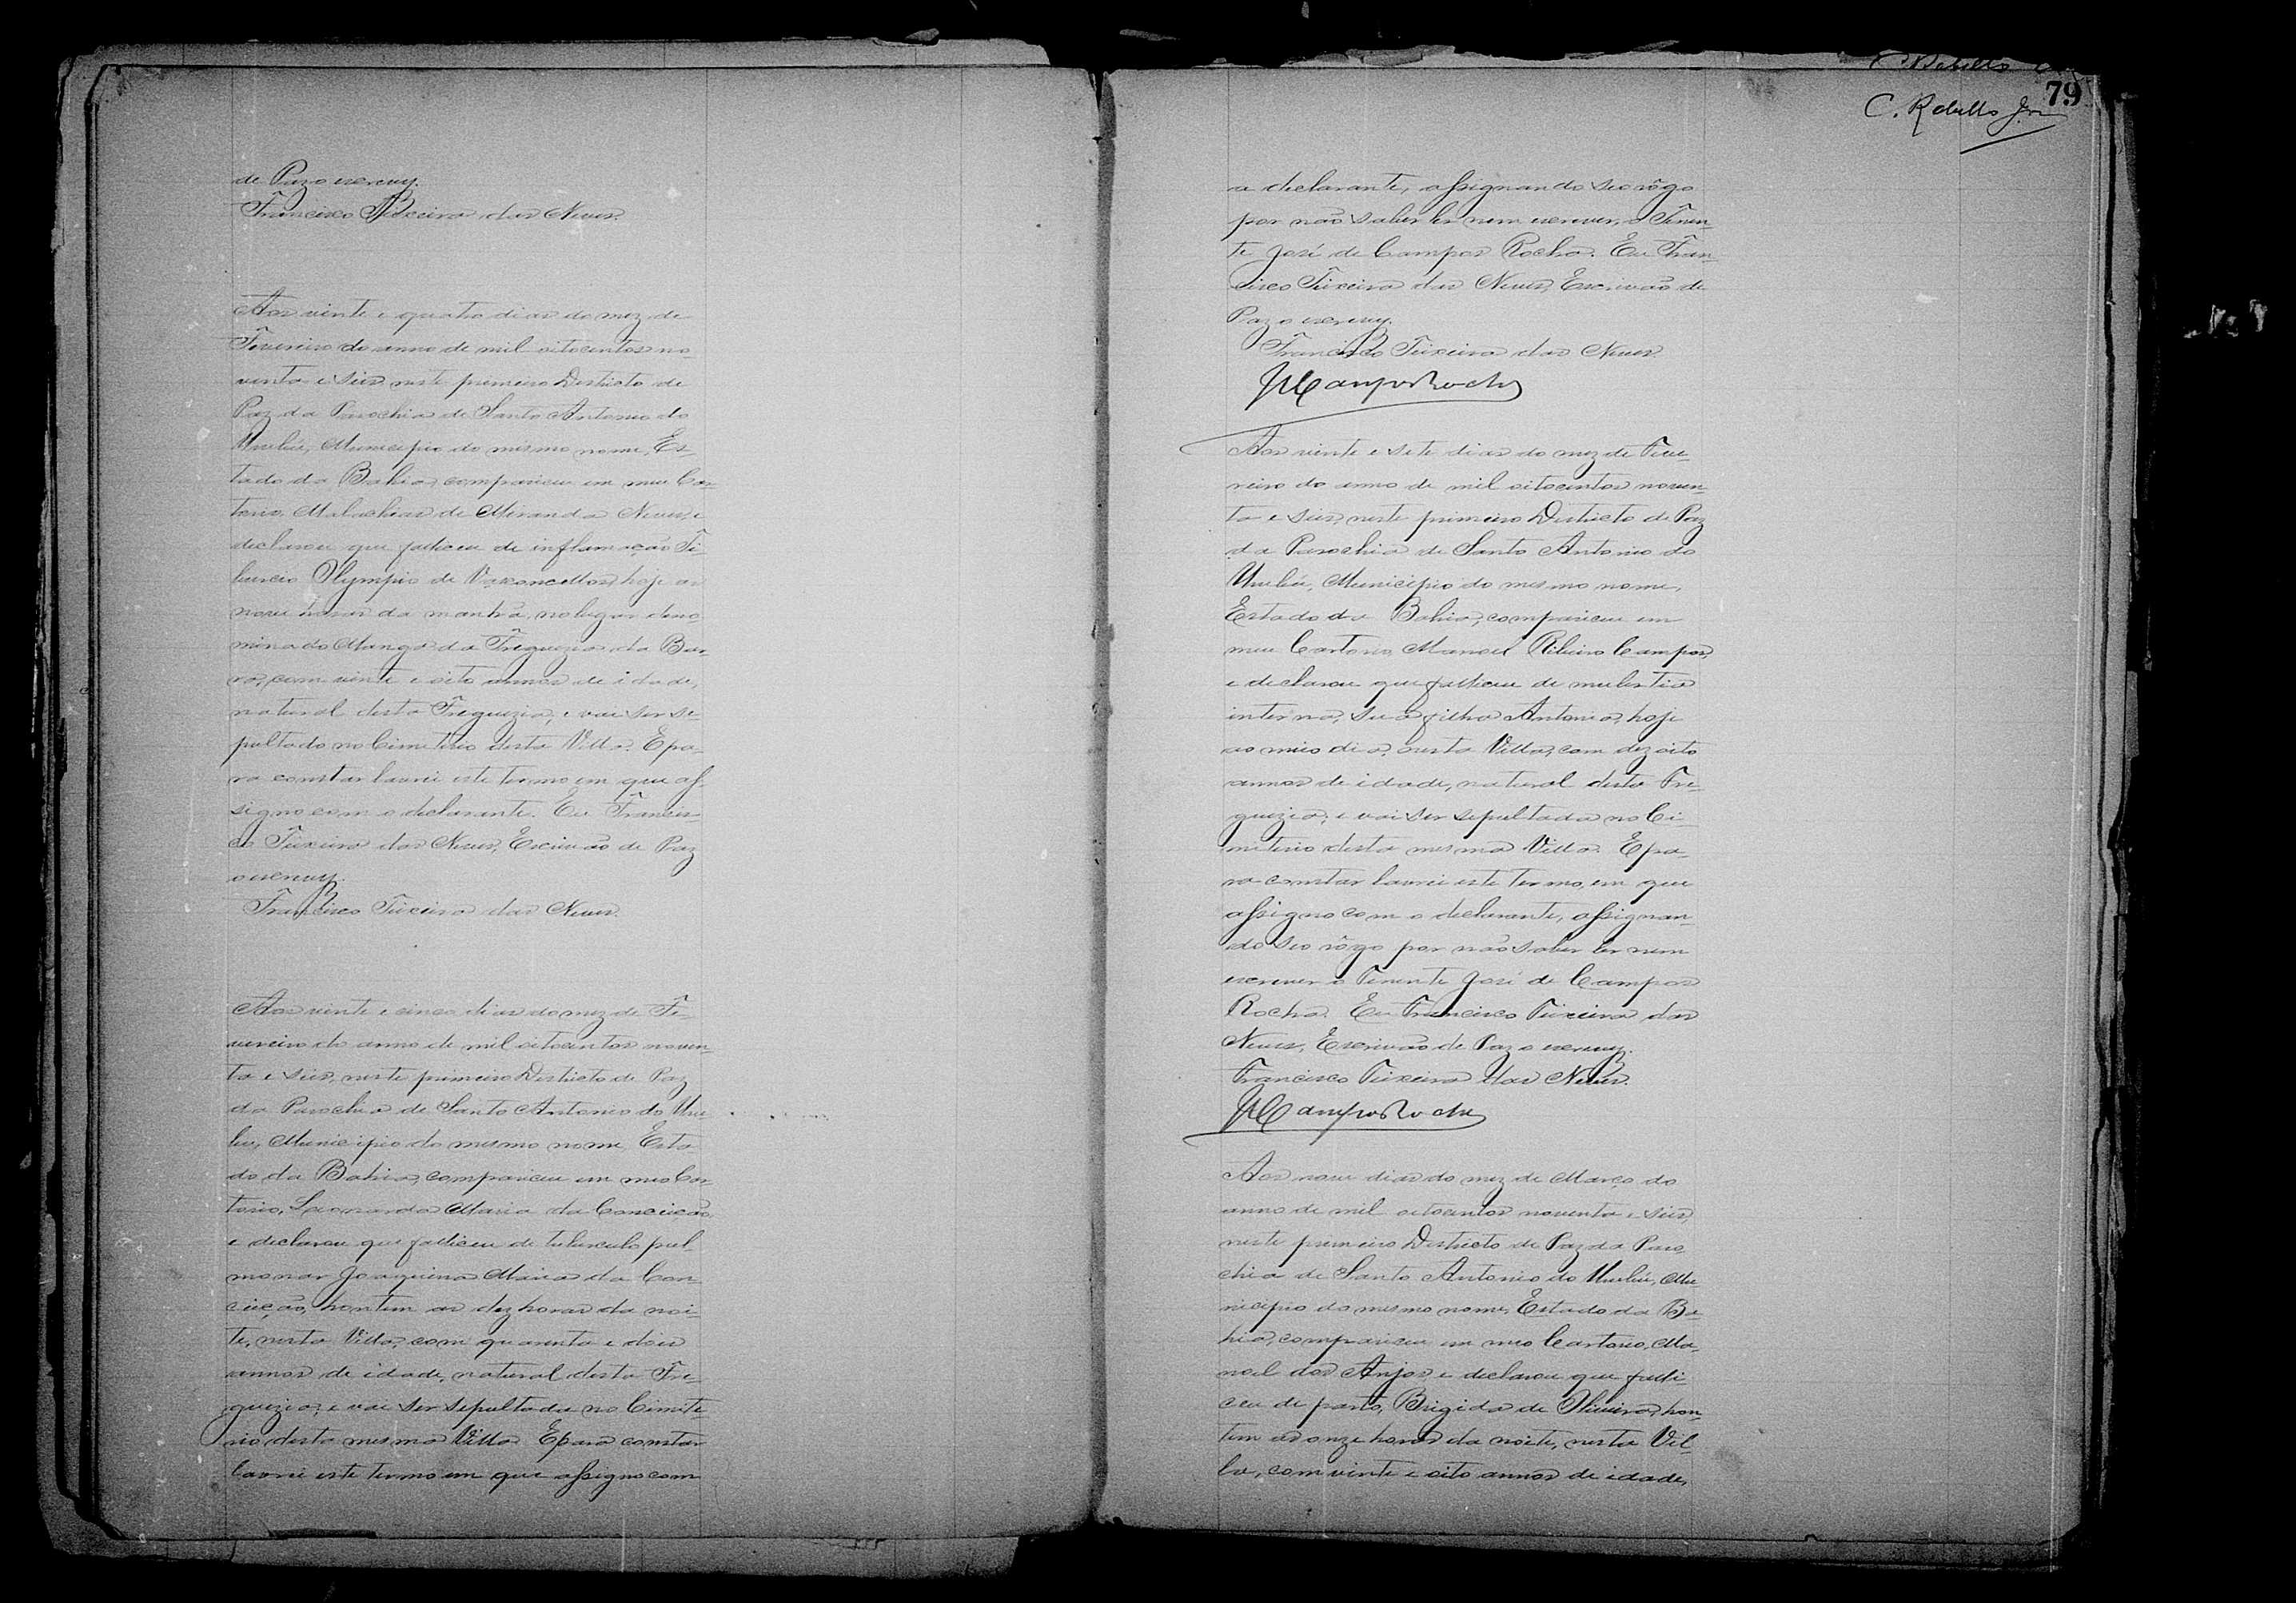 de Paz o escrevy.
Francisco Teixeira das Neves.
Aos vinte e quatro dias do mez de
Fevereiro do anno de mil oitocentos no-
venta e seis, neste primeiro Districto de
Paz da Parochia de Santo Antonio do
Urubú, Municipio do mesmo nome, Es-
tado da Bahia, compareceu em meu Car-
torio, Malachias de Miranda Neves, e
declarou que falleceu de inflamação Ti-
burcio Olympio de Vasconcellos, hoje as
nove horas da manhã, no lugar deno-
minado Manga da Freguezia da Bar-
ra, com vinte e oito annos de idade,
natural desta Freguezia, e vai ser se-
pultado no Cimiterio desta Villa. E pa-
ra constar lavrei este termo em que as-
signo com o declarante. Eu Francis-
co Teixeira das Neves, Escrivão de Paz
o escrevy.
Francisco Teixeira das Neves.
Aos vinte e cinco dias do mez de Fe-
vereiro do anno de mil oitocentos noven-
ta e seis, neste primeiro Districto de Paz
da Parochia de Santo Antonio do Uru-
bú, Municipio do mesmo nome, Esta-
do da Bahia, compareceu em meo Car-
torio, Leonarda Maria da Conceição
e declarou que falleceu de tuberculo pul-
monar Joaquina Maria da Con-
ceição, hontem as dez horas da noi-
te, nesta Villa, com quarenta e dois
annos de idade, natural desta Fre-
guezia, e vai ser sepultada no Cimite-
rio desta mesma Villa. E para constar
lavrei este termo em que assigno com
79
C. Rebello Jor
a declarante, assignando seo rôgo
por não saber ler nem escrever, o Tenen-
te José de Campos Rocha. Eu Fran-
cisco Teixeira das Neves, Escrivão de
Paz o escrevy.
Francisco Teixeira das Neves.
JdeCamposRocha
Aos vinte e sete dias do mez de Feve-
reiro do anno de mil oitocentos noven-
ta e seis, neste primeiro Districto de Paz
da Parochia de Santo Antonio do
Urubú, Municipio do mesmo nome,
Estado da Bahia, compareceu em
meu Cartorio, Manoel Ribeiro Campos,
e declarou que falleceu de mulestia
interna, sua filha Antonia, hoje
ao meio dia, nesta Villa, com dezoito
annos de idade, natural desta Fre-
guezia, e vai ser sepultada no Ci-
miterio desta mesma Villa. E pa-
ra constar lavrei este termo, em que
assigno com o declarante, assignan-
do seo rôgo por não saber ler nem
escrever o Tenente José de Campos
Rocha. Eu Francisco Teixeira das
Neves, Escrivão de Paz o escrevy.
Francisco Teixeira das Neves.
JdeCamposRocha
Aos nove dias do mez de Março do
anno de mil oitocentos noventa e seis,
neste primeiro Districto de Paz da Paro-
chia de Santo Antonio do Urubú, Mu-
nicipio do mesmo nome, Estado da Ba-
hia, compareceu em meo Cartorio, Ma-
noel dos Anjos, e declarou que falle-
ceu de parto, Brigida de Oliveira, hon-
tem as onze horas da noite, nesta Vil-
la, com vinte e oito annos de idade,